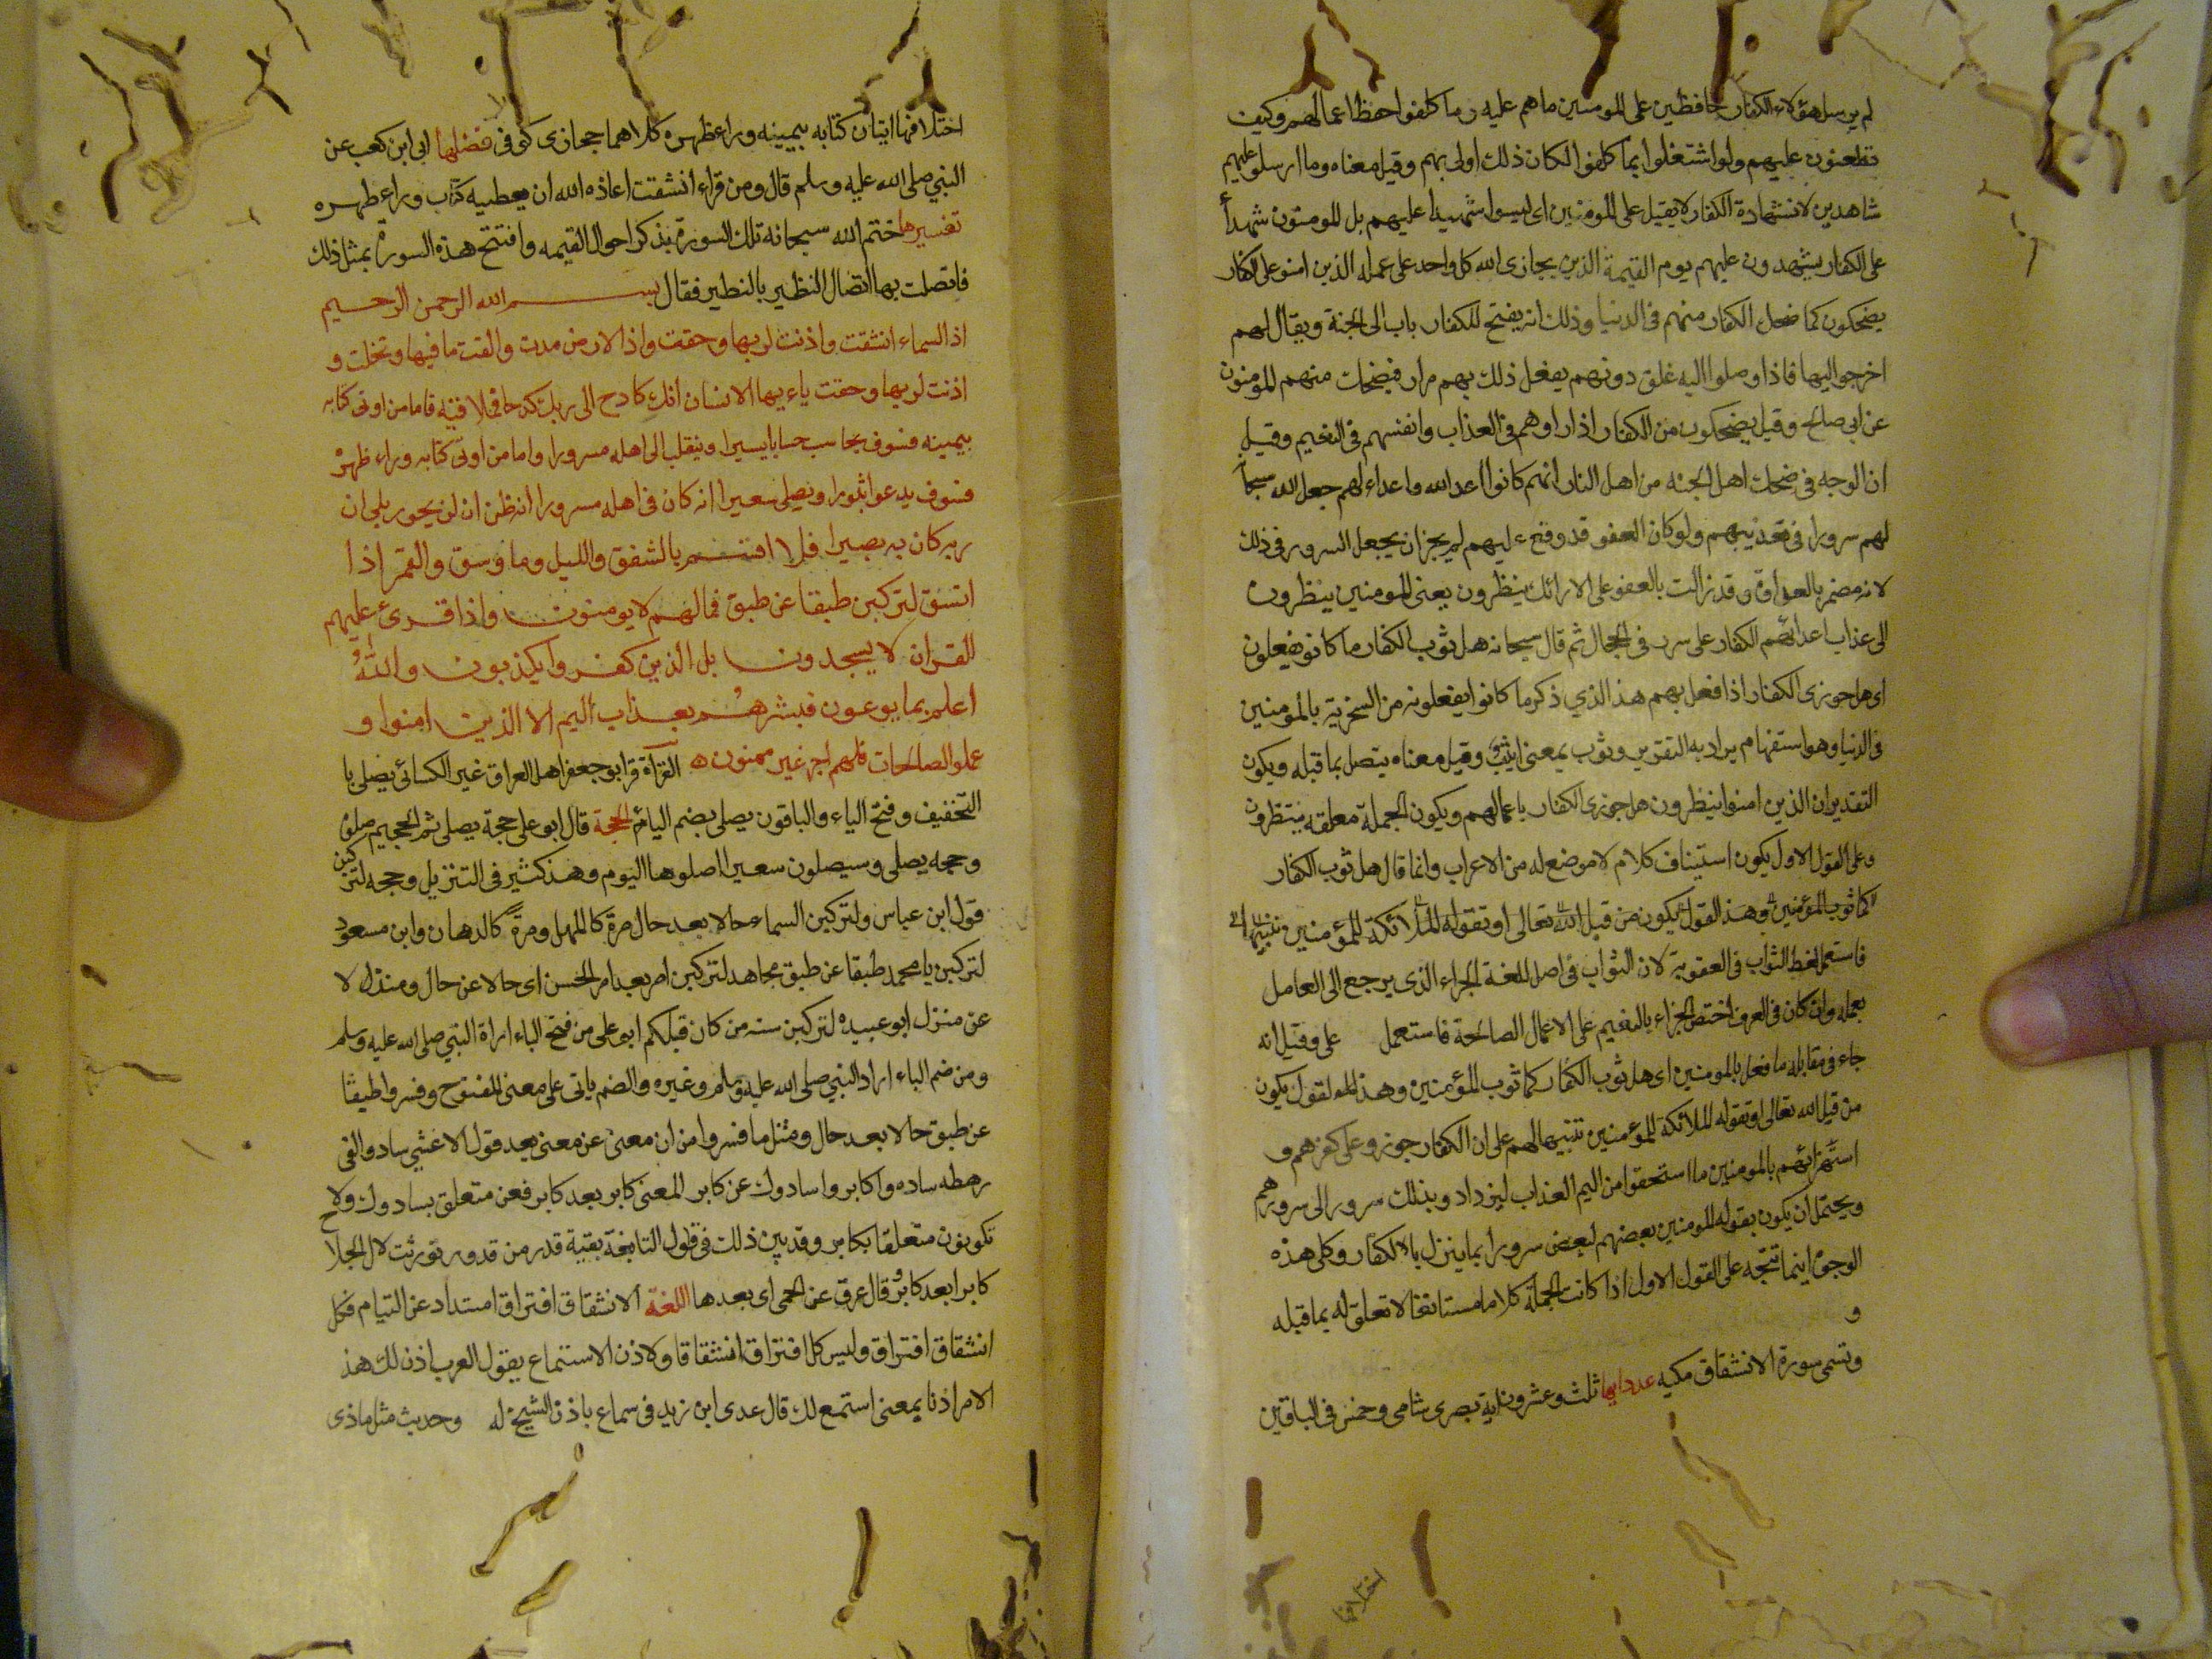 لم يرسل هؤلاء الكفار حافظين على المومنين ماهم عليه وما كلفوا حفظ اعمالهم وكيف
تطعنون عليهم ولو اشتغلوا بما كلفوا لكان ذلك اولى بهم وقيل معناه وما ارسلو عليهم
شاهدين لان شهادة الكفار لا يقبل على المومنين اى ليسوا شهيدا عليهم بل المومنون شهدأ
على الكفار يشهدون عليهم يوم القيمة الذين يجازى الله كل واحد على عمله الذين امنو على الكفار
يضحكون كما ضحك الكفار منهم فى الدنيا وذلك انه يفتح للكفار باب الى الجنة ويقال لهم
اخرجوا اليها فاذا وصلوا اليه غلق دونهم يفعل ذلك بهم مرار فيضحك منهم المؤمنون
عن ابى صالح وقيل يضحكون من الكفار اذا راوهم فى العذاب وانفسهم فى النعيم وقيل
ان الوجه فى ضحك اهل الجنه من اهل النار انهم كانوا اعدا الله واعداء لهم جعل الله سبحا
لهم سرورا فى تعذيبهم ولو كان العفو قد وقع عليهم لم يجز ان يجعل السرور فى ذلك
لانه مضمر بالعداوة وقد زالت بالعفو على الارائك ينظرون يعنى المومنين ينظرون
الى عذاب اعدائهم الكفار على سرر فى الحجال ثم قال سبحانه هل ثوب الكفار ما كانو يفعلون
اى هل جوزى الكفار اذا فعل بهم هذا الذي ذكر ما كانوا يفعلونه من السخرية بالمؤمنين
فى الدنيا وهو استفهام يراد به التقرير وثوب بمعنى اثيب وقيل معناه يتصل بما قبله ويكون
التقدير ان الذين امنوا ينظرون هل جوزى الكفار باعمالهم ويكون الجملة معلقه بينظرون
وعلى القول الاول يكون استيناف كلام لا موضع له من الاعراب وانما قال هل ثوب الكفار
كما ثوب المؤمنين وهذ القول يكون من قبل الله تعالى او تقوله الملائكة للمؤمنين تنبيها
فاستعمل لفظ الثواب فى العقوبة لان الثواب فى اصل اللغة الجزاء الذى يرجع الى العامل
بعمله وان كان فى العرف اختص الجزاء بالنعيم على الاعمال الصالحة فاستعمل على وقيل انه
جاء فى مقابله ما فعل بالمومنين اى هل ثوب الكفار كما ثوب المؤمنين وهذ القول يكون
من قبل الله تعالى او تقوله الملائكة للمؤمنين تنبيها لهم على ان الكفار جوزو على كفرهم و
استهزائهم بالمومنين ما استحقوا من اليم العذاب ليزداد وبذلك سرورا الى سرورهم
ويحتمل ان يكون يقوله المومنين بعضهم لبعض سرورا بما ينزل بالكفار وكل هذه
الوجوه اينما تتجه على القول الاول اذا كانت الجملة كلاما مستانفا لا تعلق له بما قبله
و
وتسمى سورة الانشقاق مكيه عدد ايها ثلث وعشرون اية بصرى شامى وخمس فى الباقين
اختلافها
اختلافها ايتان كتابه بيمينه وراء ظهره كلاهما حجازى كوفى فضلها ابى ابن كعب عن
النبي صلى الله عليه وسلم قال ومن قراء انشقت اعاذه الله ان يعطيه كتاب وراء ظهره
تفسيرها ختم الله سبحانه تلك السورة بذكر احوال القيمه وافتتح هذه السورة بمثل ذلك
فاتصلت بها اتصال النظير بالنظير فقال بسم الله الرحمن الرحيم
اذ السماء انشقت واذنت لربها وحقت واذا الارض مدت والقت ما فيها وتخلت و
اذنت لربها وحقت ياءيها الانسان انك كادح الى ربك كدحا فملاقيه فاما من اوتى كتابه
بيمينه فسوف يحاسب حسابا يسيرا وينقلب الى اهله مسرورا واما من اوتى كتابه وراء ظهره
فسوف يدعوا ثبورا ويصلى سعيرا انه كان فى اهله مسرورا انه ظن ان لن يحور بلى ان
ربه كان به بصيرا فلا اقسم بالشفق والليل وما وسق والقمر اذا
اتسق لتركبن طبقا عن طبق فما لهم لا يومنون واذا قرئ عليهم
القران لا يسجدون بل الذين كفروا يكذبون والله
اعلم بما يوعون فبشرهم بعذاب اليم الا الذين امنوا و
عملو الصالحات فلهم اجر غير ممنون القرآة قرا ابو جعفر اهل العراق غير الكسائى يصلى با
التخفيف وفتح الياء والباقون يصلى بضم الياء الحجة قال ابو على حجة يصلى ثم الجحيم صلوه
وحجه يصلى وسيصلون سعيرا اصلوها اليوم وهذ كثير فى التنزيل وحجه لتركبن
قول ابن عباس ولتركبن السماء حالا بعد حال مرة كالمهل ومرة كالدهان وابن مسعود
لتركبن يا محمد طبقا عن طبق مجاهد لتركبن امر بعد امر الحسن اى حالا عن حال ومنزلا
عن منزل ابو عبيده لتركبن سنه من كان قبلكم ابى على من فتح الباء اراة النبي صلى الله عليه وسلم
ومن ضم الباء اراد النبي صلى الله عليه وسلم وغيره والضم ياتى على معنى المفتوح وفسروا طبقا
عن طبق حالا بعد حال ومثل ما فسروا من ان معنى عن معنى بعد قول الاعشى ساد والفى
رهطه ساده وكابروا سادوك عن كابر المعنى كابر بعد كابر فعن متعلق بسادوك ولا
تكونون متعلقا بكابر وقد بين ذلك فى قول النابغة بقية قدر من قدور تورثت لال الجلا
كابرا بعد كابر وقال عرق عن الحمى اى بعدها اللغة الانشقاق افتراق امتداد عن التيام فكل
انشقاق افتراق وليس كل افتراق انشقاقا ولاذن الاستماع يقول العرب اذن لك هذ
الامر اذنا بمعنى استمع لك قال عدى ابن زيد فى سماع ياذن الشيخ له وحديث مثل ماذى